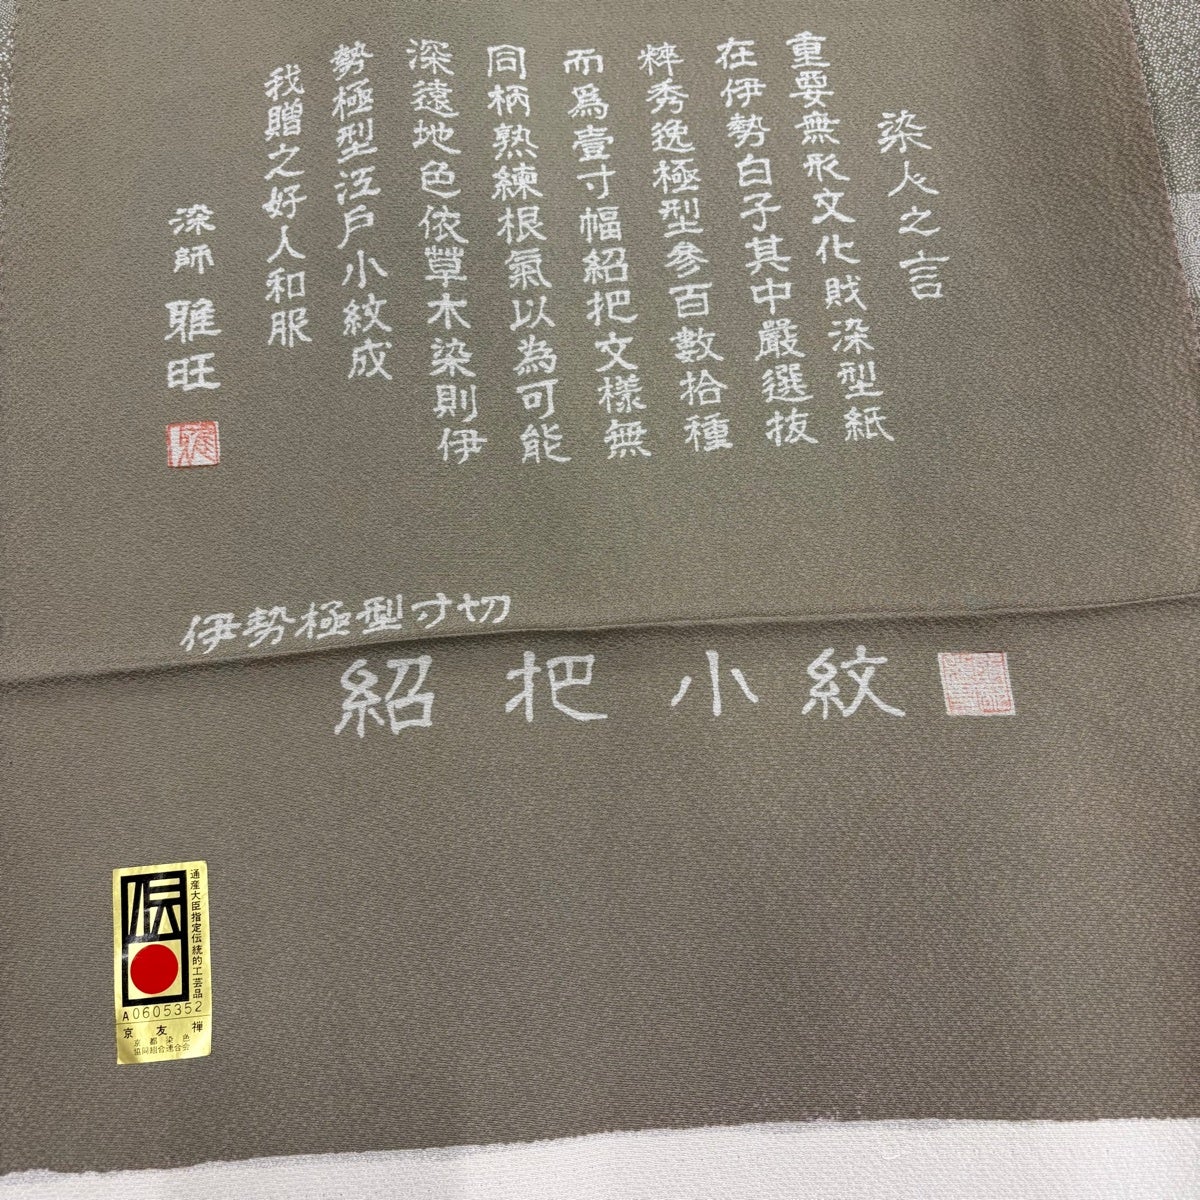 染人之言
重要無形文化財染型紙
在伊勢白子其中嚴選抜
粹秀逸極型參百數拾種
而為壹寸幅紹把文樣無
同柄熟練根氣以為可能
深遠地色依草木染則伊
勢極型江戶小紋成
我贈之好人和服
染師 雅旺
伊勢極型寸切
紹把小紋
通産大臣指定伝統的工芸品
伝
A0605352
京友禅
京都染色
協同組合連合会